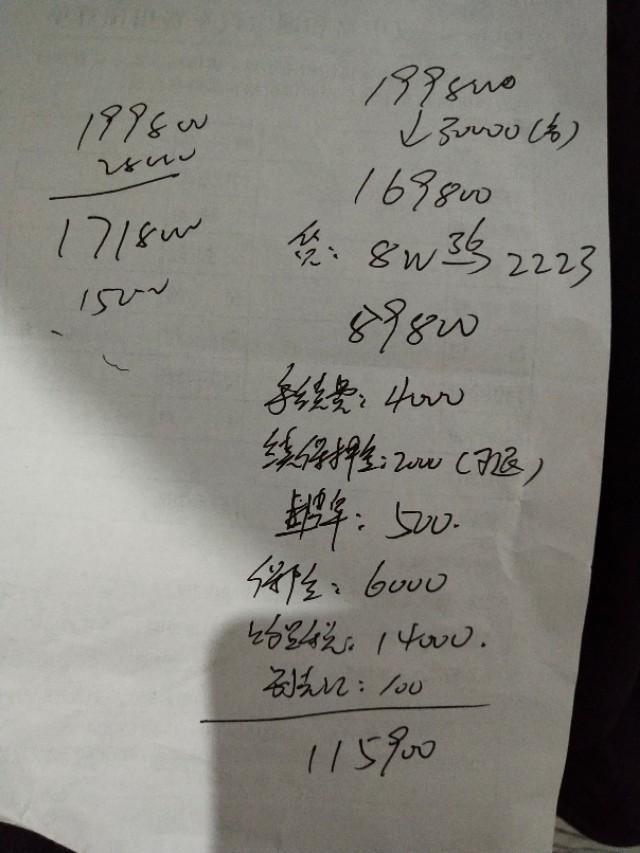 199800
28000
171800
15000
199800
↓30000(含)
169800
贷: 8W 36 2223
89800
手续费: 4000
续保押金: 2000 (可退)
上牌: 500.
保险: 6000
购置税: 14000.
: 100
115900